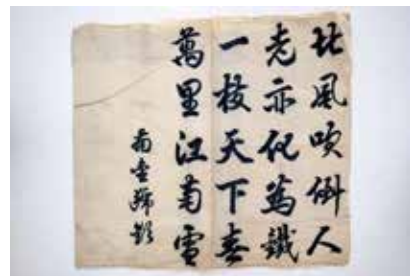 北風吹倒人
老亦化為鐵
一枝天下春
萬里江南雪